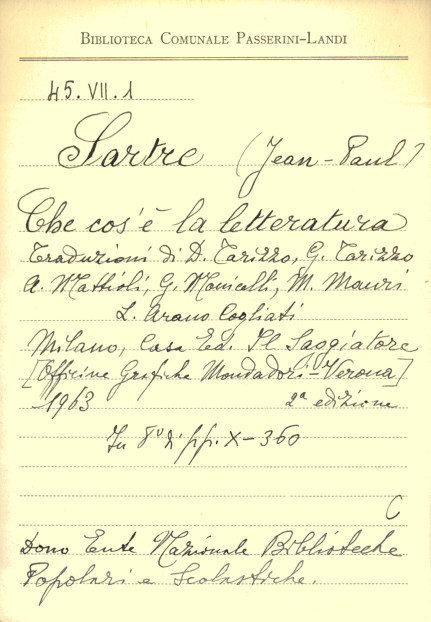 BIBLIOTECA COMUNALE PASSERINI-LANDI
45.VII.1
Sartre (Jean-Paul)
Che cos'è la letteratura
Traduzioni di D. Tarizzo, G. Tarizzo
A. Mattioli, G. Monicelli, M. Mauri
L. Arano Cogliati
Milano, Casa Ed. Il Saggiatore
[Officine Grafiche Mondadori-Verona]
1963 2ª edizione
In 8º di pp. X-360
C
Dono Ente Nazionale Biblioteche
Popolari e Scolastiche.